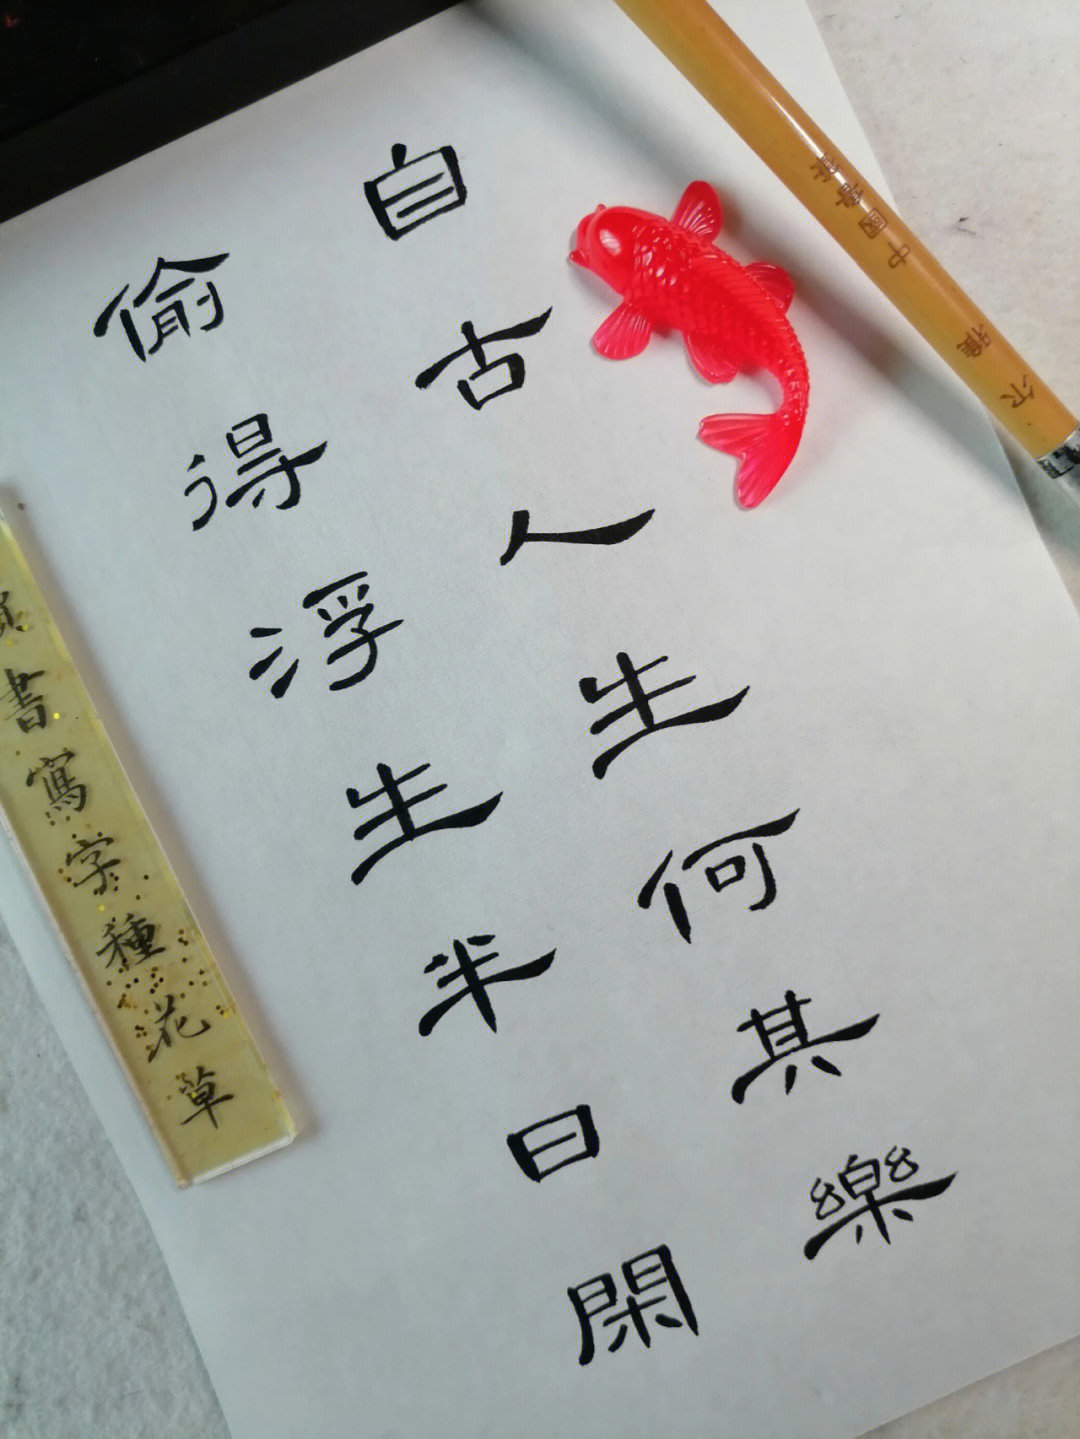 自古人生何其樂
偷得浮生半日閑
書寫字種花草
中國